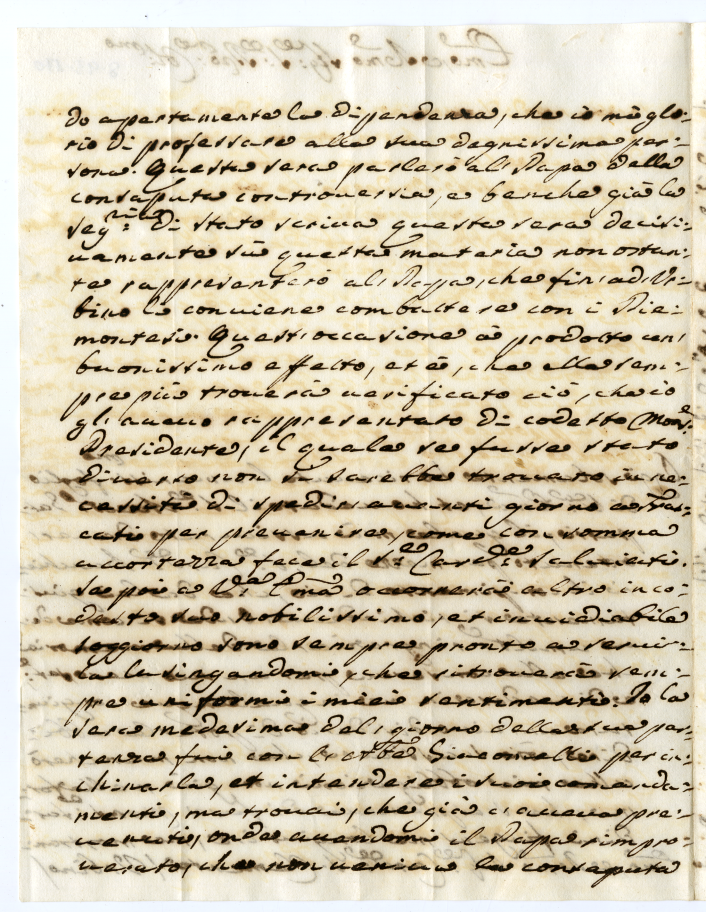 do apertamente la dipendenza, che io mi glo-
rio di professare alla sua degnissima per-
sona. Questa sera parlerò al Papa della
consaputa controversia, e benche già la
Seg.ria di Stato scriva questa sera decisi-
vamente sù questa materia non ostan-
te rappresenterò al Papa, che fin ad Ur-
bino le conviene combattere con i Pie-
montesi. Quest'occasione à prodotto un
buonissimo effetto, et è, che ella sem-
pre più troverà verificato ciò, che io
gli avevo rappresentato di codesto Mons.r
Presidente, il quale se fusse stato
diverso non si sarebbe trovato in ne-
cessità di spedir avanti giorno a Fras-
cati per prevenire, come con somma
accortezza fece il S.e Card.e Salviati.
Se poi a V.a Em.a occorrerà altro in co-
desto suo nobilissimo, et invidiabile
soggiorno sono sempre pronto a servir-
la lusingandomi, che ritroverà sem-
pre uniformi i miei sentimenti. Io la
sera medesima del giorno della sua par-
tenza fui con Abbe Giacomelli per in-
chinarla, et intendere i suoi comanda-
menti, ma trovai, che già ci aveva pre-
venuti, onde avendomi il Papa rimpro-
verato, che non veniva la consaputa